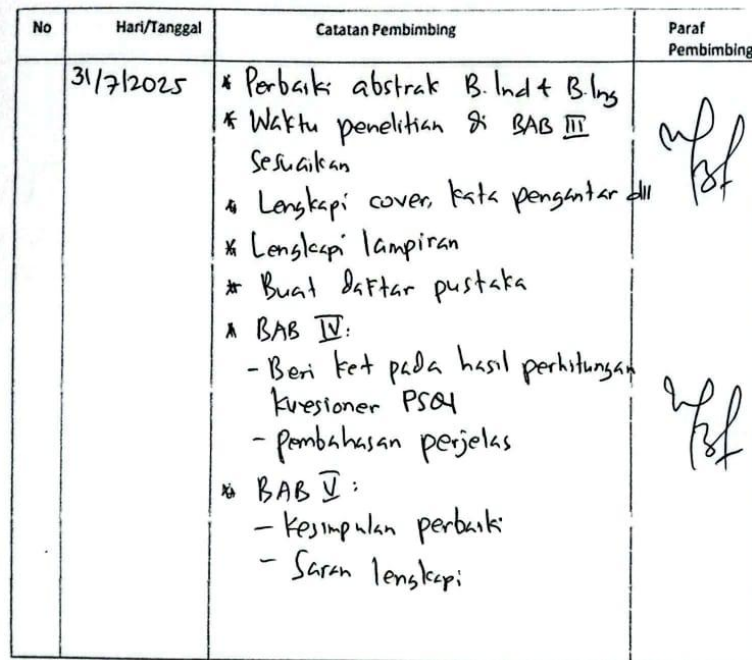 No Hari/Tanggal Catatan Pembimbing Paraf Pembimbing
31/7/2025
* Perbaiki abstrak B.Ind + B.Ing
* Waktu penelitian di BAB III
Sesuaikan
* Lengkapi cover, kata pengantar dll
* Lengkapi lampiran
* Buat daftar pustaka
* BAB IV:
- Beri ket pada hasil perhitungan
kuesioner PSQI
- pembahasan perjelas
* BAB V:
- kesimpulan perbaiki
- Saran lengkapi